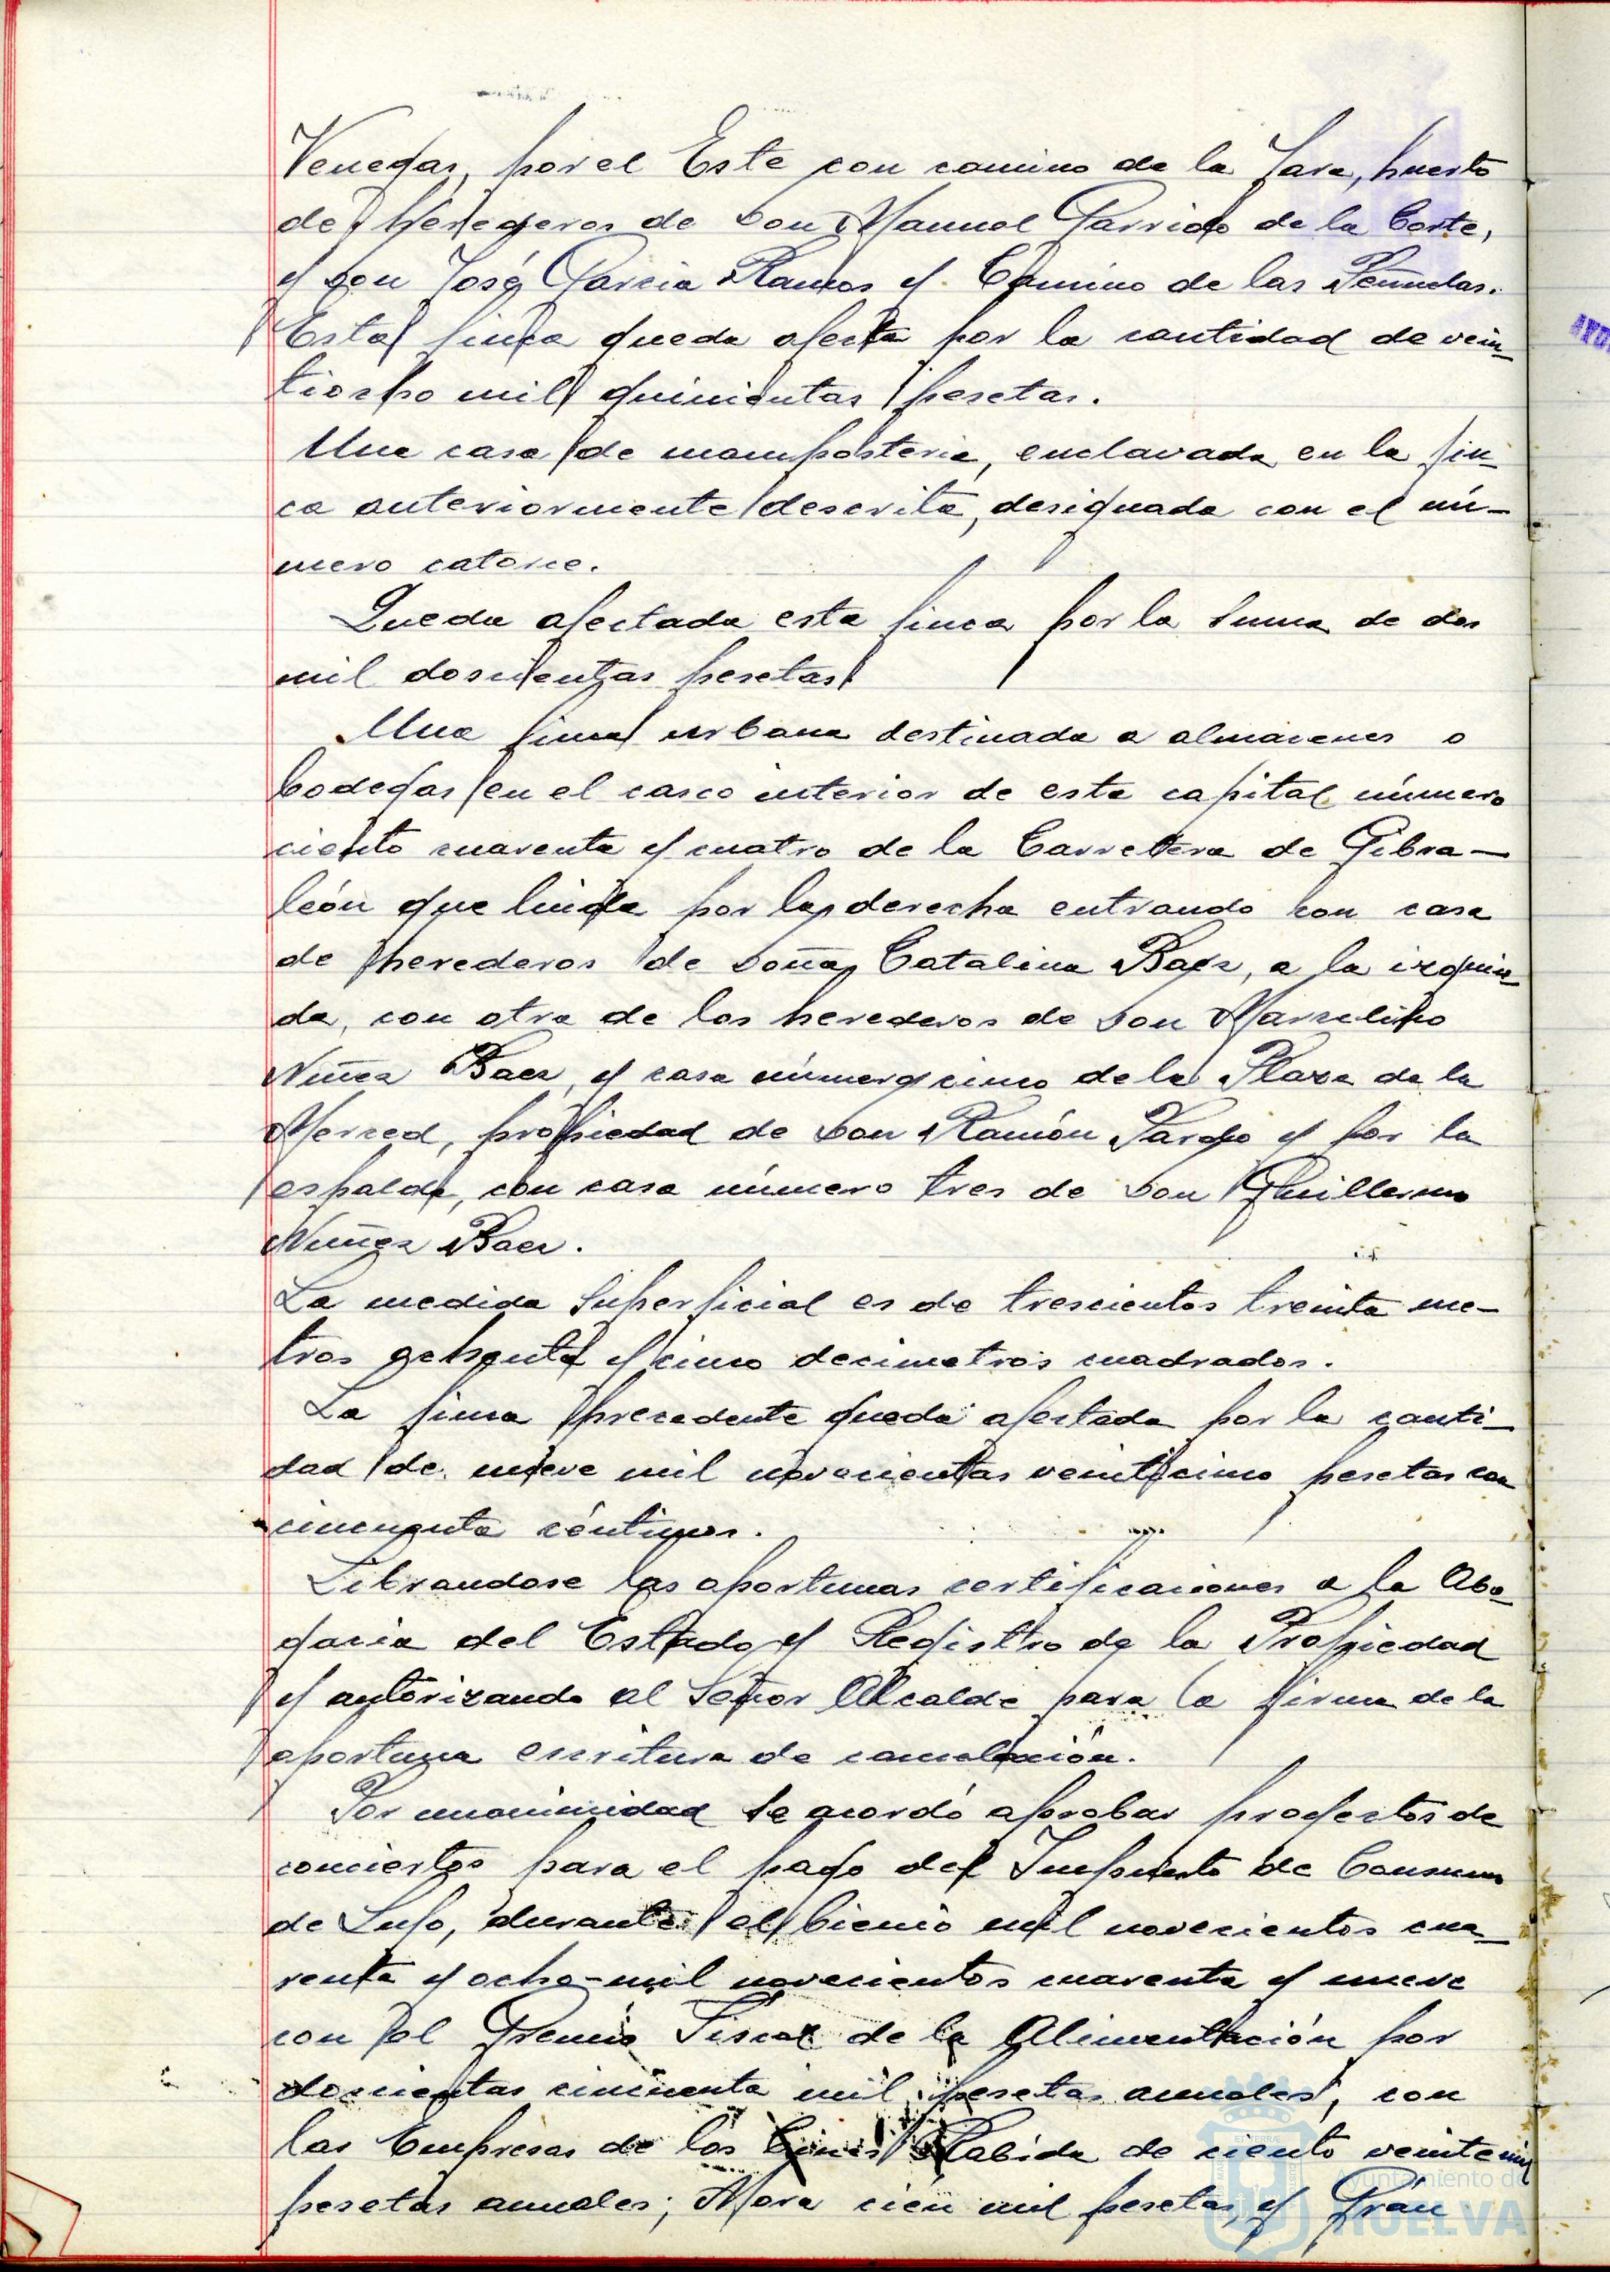 Venegas, por el Este con camino de la Jara, huerto
de herederos de Don Manuel Garrido de la Corte,
y don José Garcia Ramos y Camino de las Peñuelas.
Esta finca queda afecta por la cantidad de vein-
tiocho mil quinientas pesetas.
Una casa de mamposteria, enclavada en la fin-
ca anteriormente descrita, designada con el nú-
mero catorce.
Queda afectada esta finca por la suma de dos
mil doscientas pesetas.
Una finca urbana destinada a almacenes o
bodegas en el casco interior de esta capital número
ciento cuarenta y cuatro de la Carretera de Gibra-
león que linda por la derecha entrando con casa
de herederos de Doña Catalina Baez, a la izquier-
da, con otra de los herederos de Don Marcelino
Nuñez Baez, y casa número cinco de la Plaza de la
Merced, propiedad de Don Ramón Pardo y por la
espalda, con casa número tres de Don Guillermo
Nuñez Baez.
La medida superficial es de trescientos treinta me-
tros ochenta y cinco decimetros cuadrados.
La finca precedente queda afectada por la canti-
dad de nueve mil novecientas veinticinco pesetas con
cincuenta céntimos.
Librandose las oportunas certificaciones a la Abo-
gacia del Estado y Registro de la Propiedad
y autorizando al Señor Alcalde para la firma de la
oportuna escritura de cancelación.
Por unanimidad se acordó aprobar proyectos de
conciertos para el pago del Impuesto de Consumo
de Lujo, durante el bienio mil novecientos cua-
renta y ocho-mil novecientos cuarenta y nueve
con el Gremio Fiscal de la Alimentación por
doscientas cincuenta mil pesetas anuales, con
las Empresas de los Cines Rabida de ciento veinte mil
pesetas anuales; Mora cien mil pesetas, y Gran
Ayuntamiento de
HUELVA